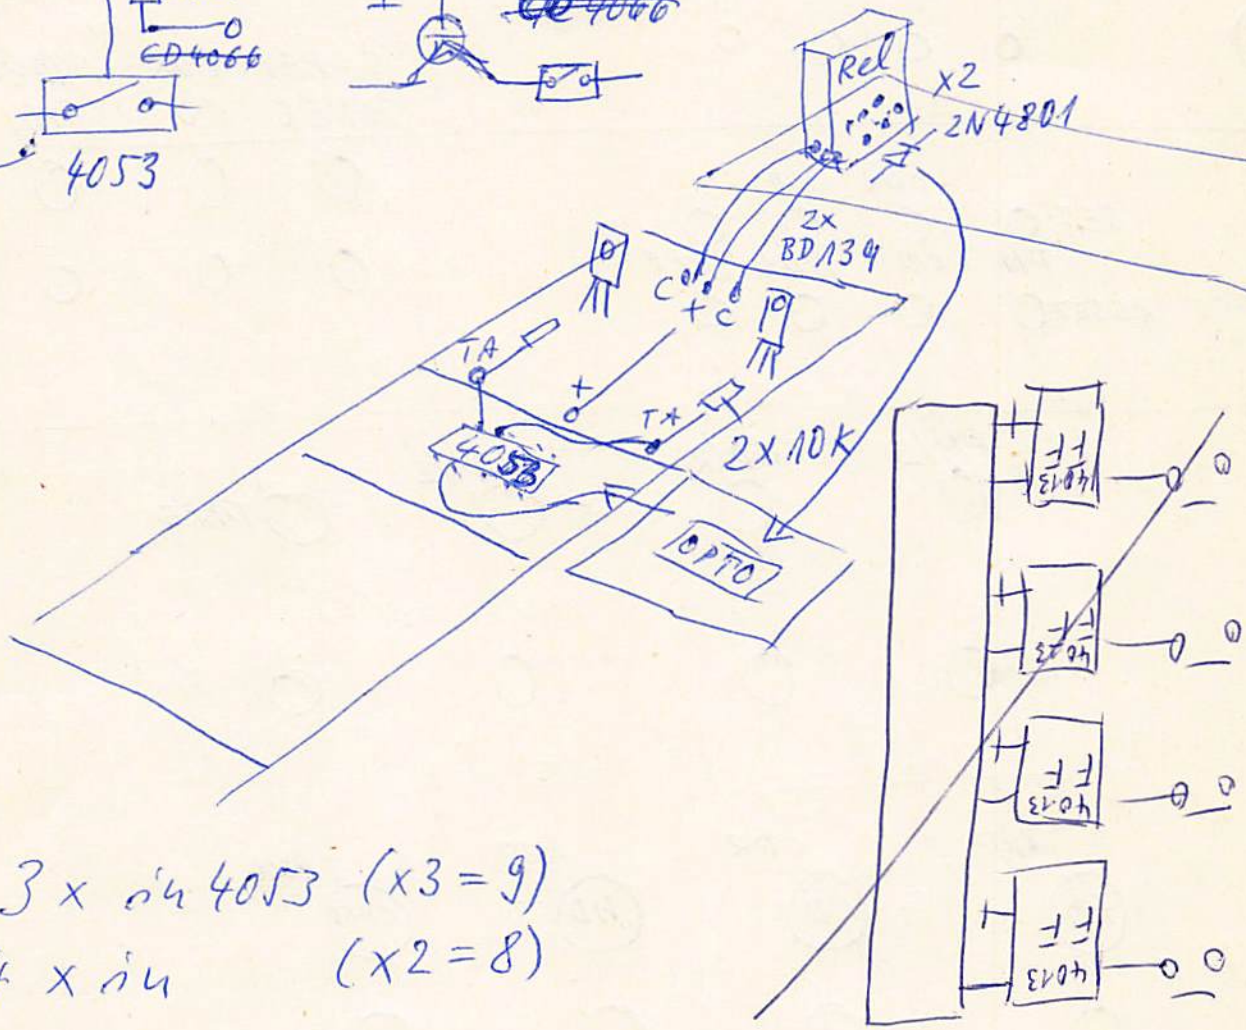 CD4066
4053
4066
Rel
x2
2N4801
2x
BD139
C + C
TA
+
T*
4053
2x10K
OPTO
4013
FF
4013
FF
4013
FF
4013
FF
3 x in 4053 (x3 = 9)
x in (x2 = 8)